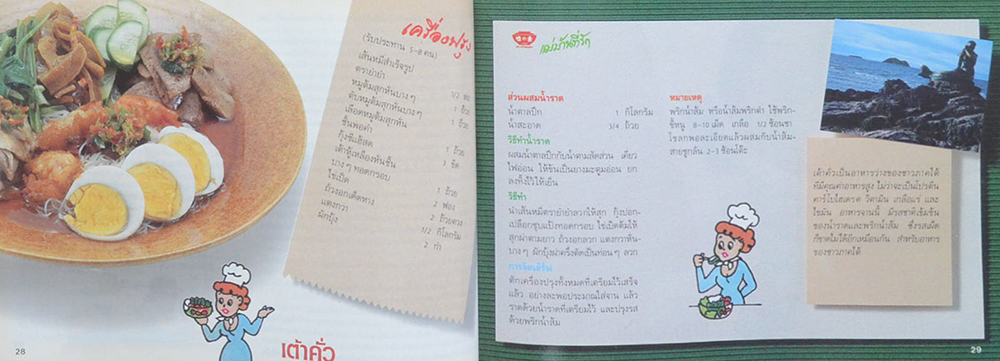 เครื่องปรุง
(รับประทาน 5-8 คน)
เส้นหมี่สำเร็จรูป
ตรายำยำ 1/2 ห่อ
หมูต้มสุกหั่นบางๆ 1 ถ้วย
ตับหมูต้มสุกหั่นบางๆ 1 ถ้วย
เลือดหมูต้มสุกหั่น
ชิ้นพอคำ 1 ถ้วย
กุ้งชีแฮ้สด 3 ขีด
เต้าหู้เหลืองหั่นชิ้น
บางๆ ทอดกรอบ 1 ถ้วย
ไข่เป็ด 2 ฟอง
ถั่วงอกเด็ดหาง 2 ถ้วยตวง
แตงกวา 1/2 กิโลกรัม
ผักบุ้ง 2 กำ
เต้าคั่ว
28
แม่บ้านที่รัก
ส่วนผสมน้ำราด
น้ำตาลปึก 1 กิโลกรัม
น้ำสะอาด 3/4 ถ้วย
วิธีทำน้ำราด
ผสมน้ำตาลปึกกับน้ำตามสัดส่วน เคี่ยว
ไฟอ่อน ให้ข้นเป็นยางมะตูมอ่อน ยก
ลงทิ้งไว้ให้เย็น
วิธีทำ
นำเส้นหมี่ตรายำยำลวกให้สุก กุ้งปอก-
เปลือกชุบแป้งทอดกรอบ ไข่เป็ดต้มให้
สุกผ่าตามยาว ถั่วงอกลวก แตงกวาหั่น-
บางๆ ผักบุ้งผ่าครึ่งตัดเป็นท่อนๆ ลวก
การจัดเสิร์ฟ
ตักเครื่องปรุงทั้งหมดที่เตรียมไว้เสร็จ
แล้ว อย่างละพอประมาณใส่จาน แล้ว
ราดด้วยน้ำราดที่เตรียมไว้ และปรุงรส
ด้วยพริกน้ำส้ม
หมายเหตุ
พริกน้ำส้ม หรือน้ำส้มพริกตำ ใช้พริก-
ขี้หนู 8-10 เม็ด เกลือ 1/2 ช้อนชา
โขลกพอละเอียดแล้วผสมกับน้ำส้ม-
สายชูกลั่น 2-3 ช้อนโต๊ะ
เต้าคั่วเป็นอาหารว่างของชาวภาคใต้
ที่มีคุณค่าอาหารสูง ไม่ว่าจะเป็นโปรตีน
คาร์โบไฮเดรต วิตามิน เกลือแร่ และ
ไขมัน อาหารจานนี้ มีรสชาติเข้มข้น
ของน้ำราดและพริกน้ำส้ม ซึ่งรสเผ็ด
ก็ขาดไม่ได้อีกเหมือนกัน สำหรับอาหาร
ของชาวภาคใต้
29